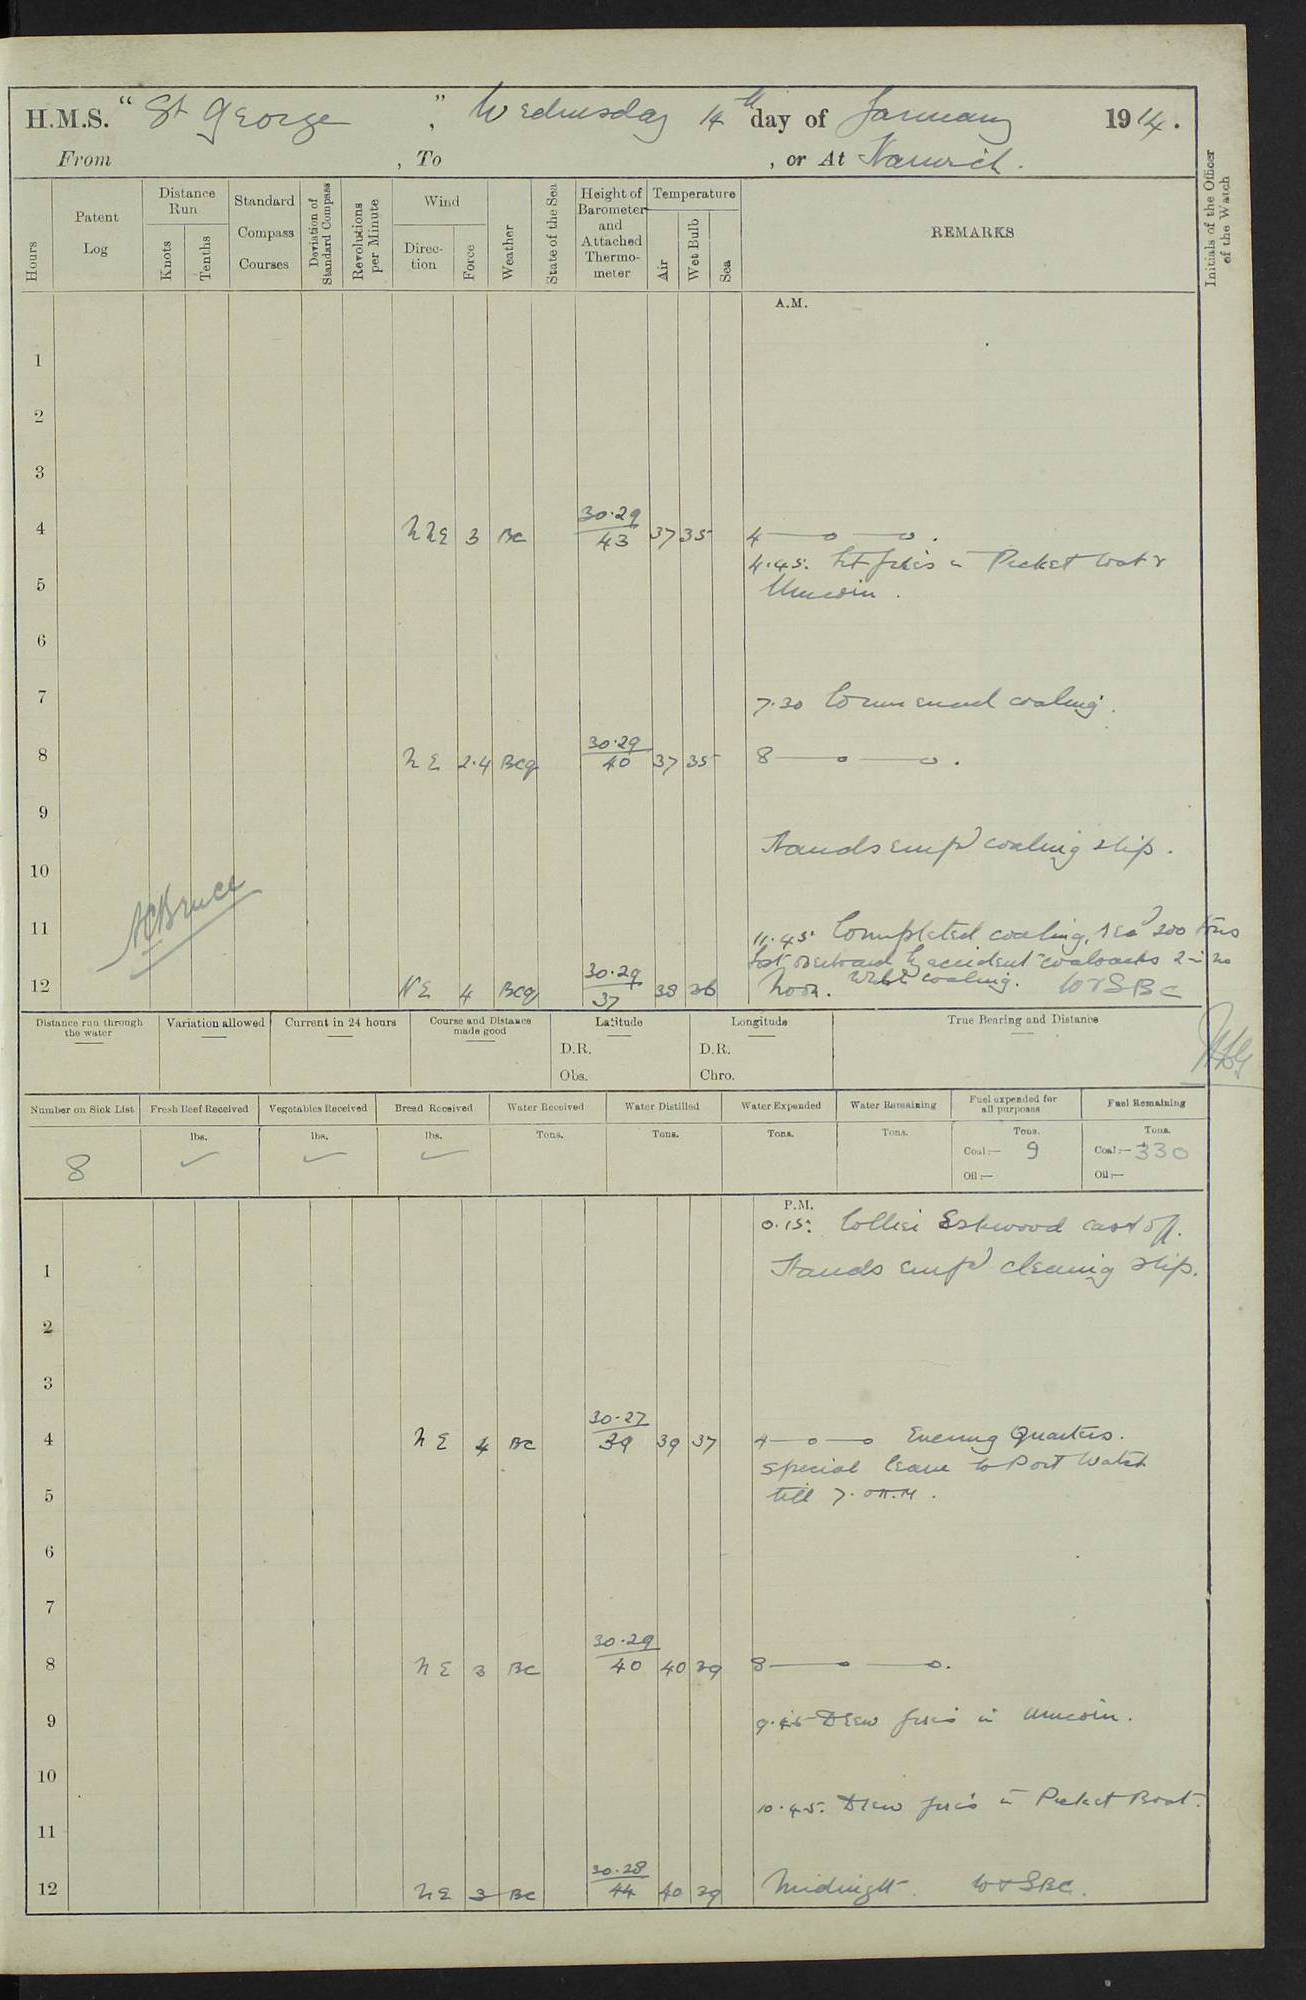 H.M.S. "St George", Wednesday 14th day of January 1914.
From , To , or At Harwich.
Hours
Patent Log
Distance Run
Knots
Tenths
Standard Compass Courses
Deviation of Standard Compass
Revolutions per Minute
Wind
Direction
Force
Weather
State of the Sea
Height of Barometer and Attached Thermometer
Temperature
Air
Wet Bulb
Sea
REMARKS
Initials of the Officer of the Watch
A.M.
1
2
3
4 NNE 3 BC 30.29/43 37 35 4 —o —o .
4.45. Lit fires in Picket boat &
5 Unicorn.
6
7 7.30 Commenced coaling.
8 NE 2.4 BCq 30.29/40 37 35 8 —o —o .
9
Hands empd coaling ship.
10
11 11.45. Completed coaling, recd 200 tons
lost overboard by accident coalsacks 2 in no
whilst coaling.
12 NE 4 BCq 30.29/37 38 36 Noon. W&SBC
ACBruce
Distance run through the water
Variation allowed
Current in 24 hours
Course and Distance made good
Latitude
D.R.
Obs.
Longitude
D.R.
Chro.
True Bearing and Distance
Number on Sick List 8
Fresh Beef Received lbs. ✓
Vegetables Received lbs. ✓
Bread Received lbs. ✓
Water Received Tons.
Water Distilled Tons.
Water Expended Tons.
Water Remaining Tons.
Fuel expended for all purposes Tons.
Coal:— 9
Oil:—
Fuel Remaining Tons.
Coal:— 330
Oil:—
P.M.
0.15. Collier Eskwood cast off.
1 Hands empd cleaning ship.
2
3
4 NE 4 BC 30.27/39 39 37 4 —o —o Evening Quarters.
Special leave to Port Watch
5 till 7.0 P.M.
6
7
8 NE 3 BC 30.29/40 40 39 8 —o —o.
9 9.45 Drew fires in Unicorn.
10
10.45. Drew fires in Picket Boat.
11
12 NE 3 BC 30.28/44 40 39 Midnight. W&SBC.